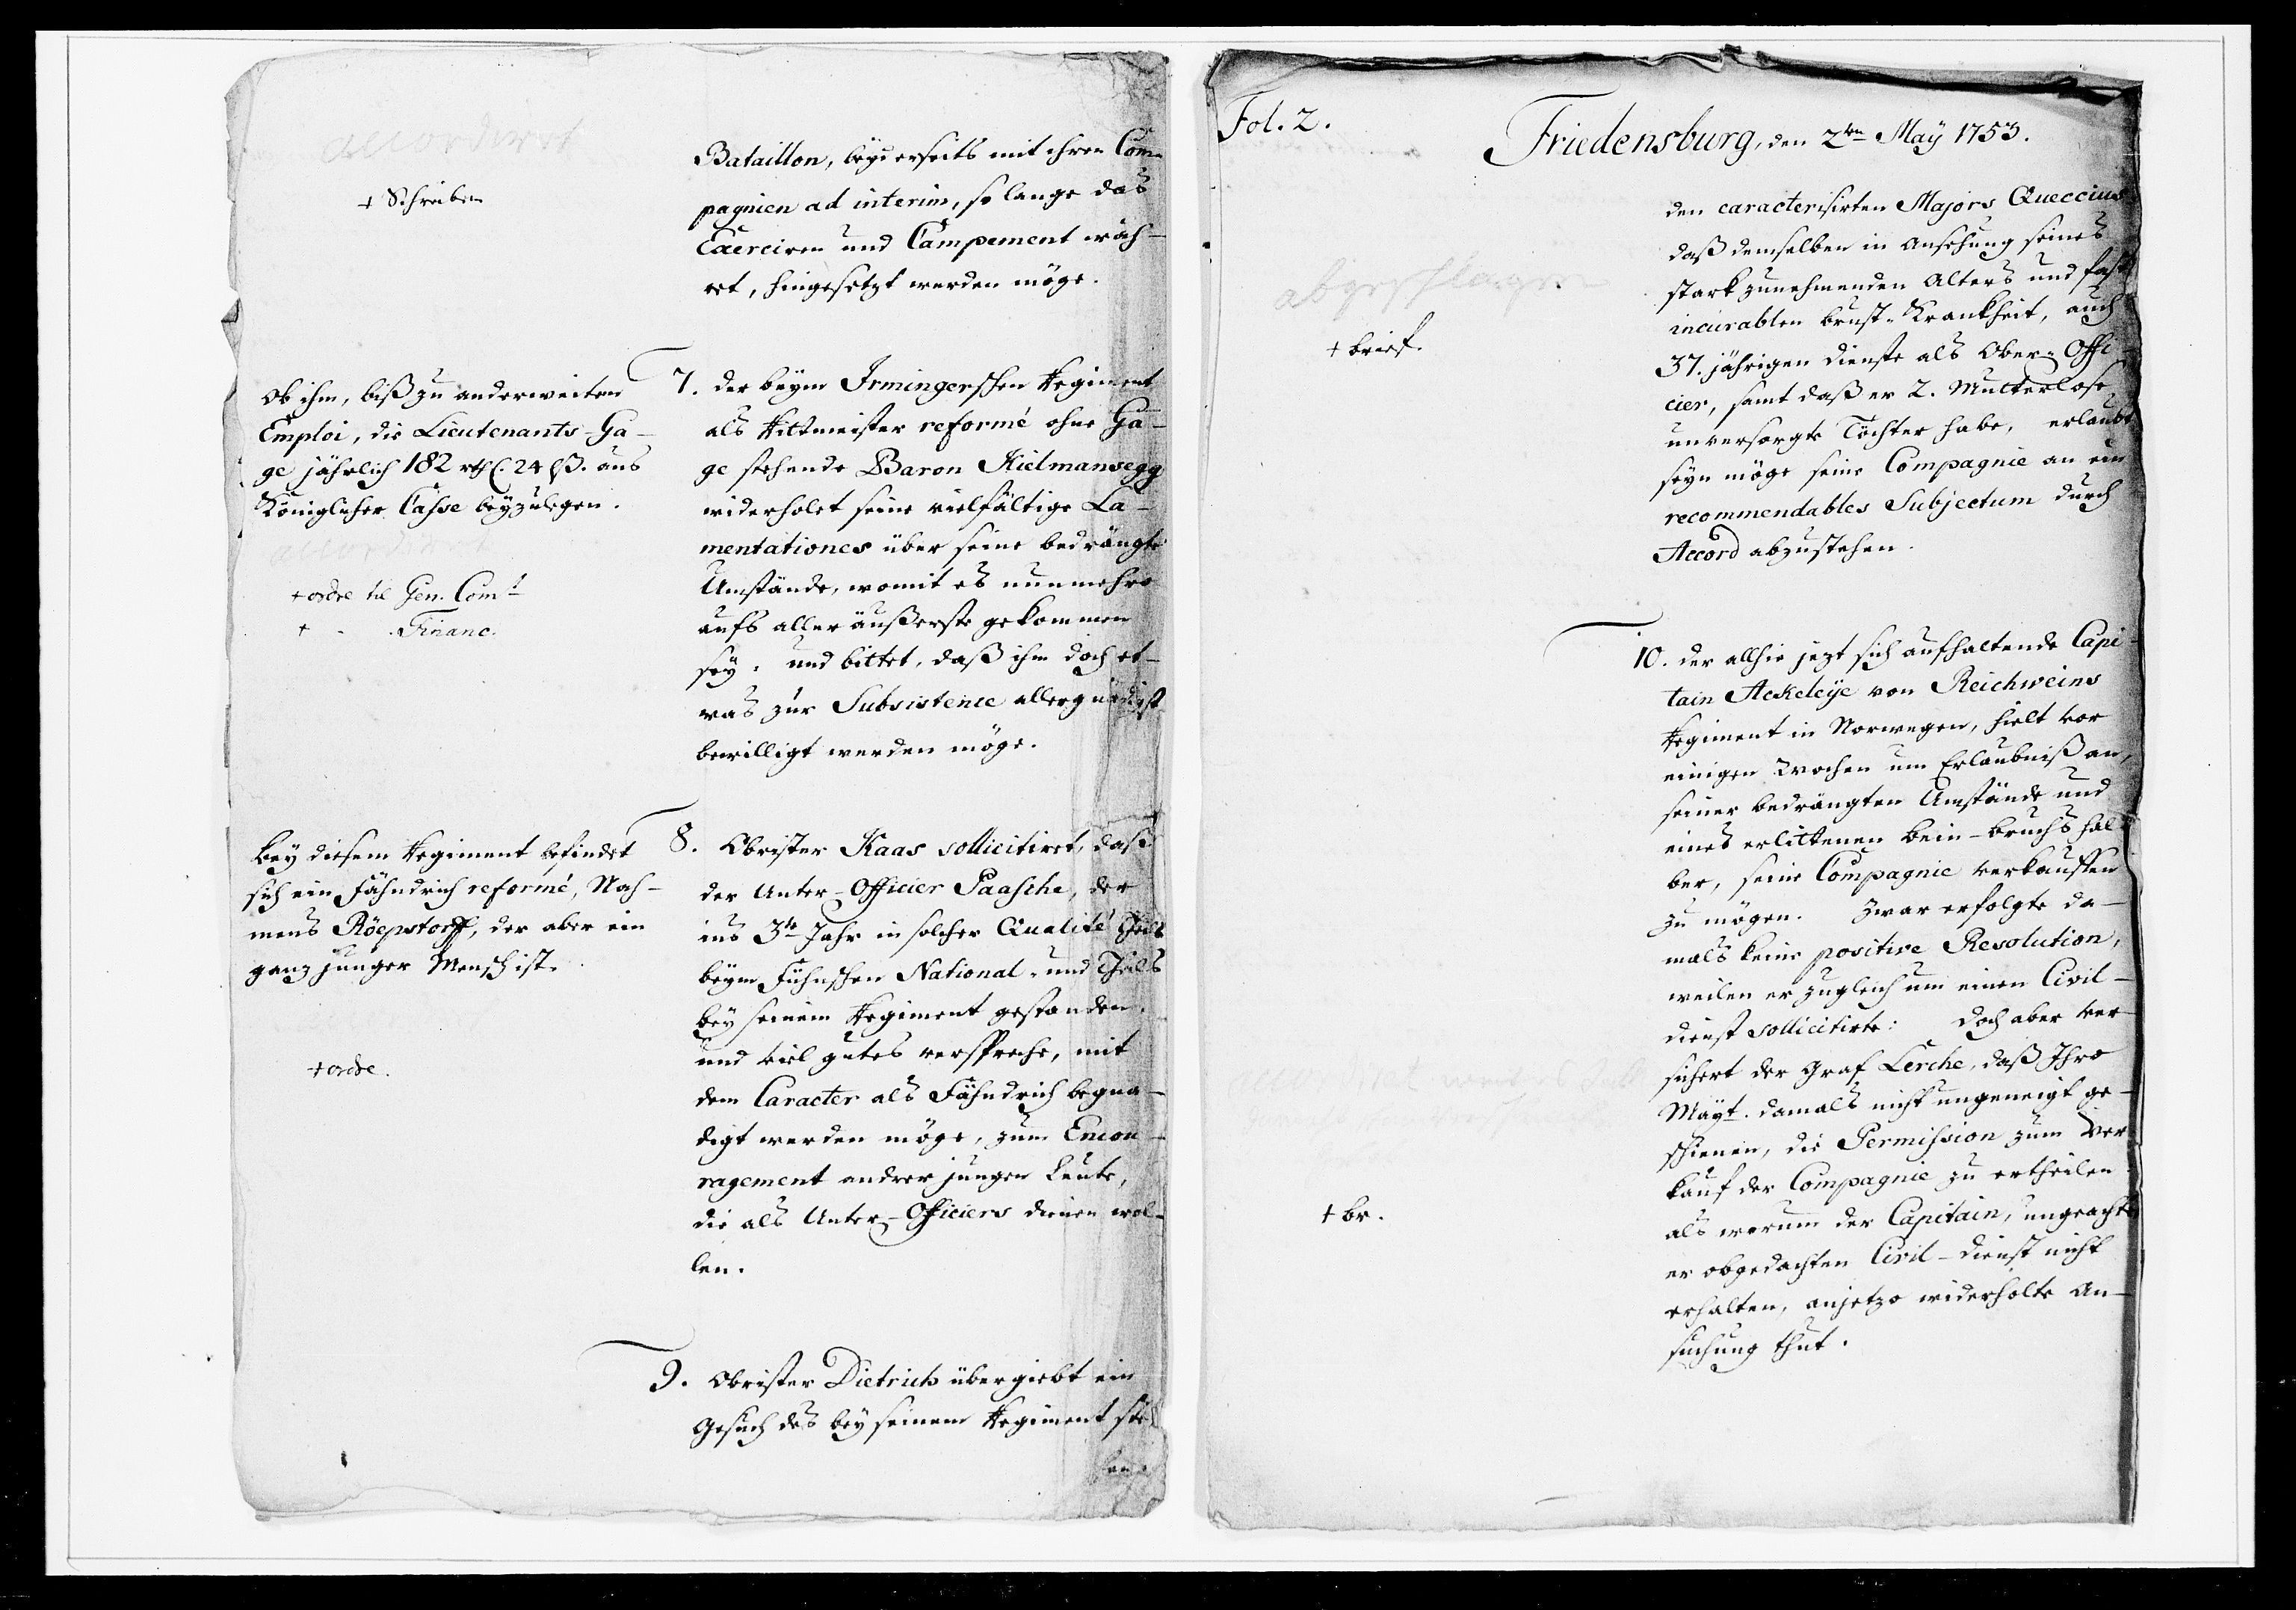 accordiret
+ Schreiben
Bataillon, beyderseits mit ihren Com-
pagnien ad interim, so lange das
Exerciren und Campement wäh-
ret, hingesetzt werden möge.
Ob ihm, biß zu anderweiten
Emploi, die Lieutenants-Ga-
ge jährlich 182 rthl. 24 ßl. aus
Königlicher Casse beyzulegen.
accordiret
+ ordre til Gen. Comt
+ - Financ.
7. der beym Irmingerschen Regiment
als Rittmeister reformé ohne Ga-
ge stehende Baron Kielmansegg
widerholet seine vielfältige La-
mentationes über seine bedrängte
Umstände, womit es nunmehro
aufs aller äußerste gekommen
sey, und bittet, daß ihm doch et-
was zur Subsistence allergnädigst
bewilligt werden möge.
bey diesem Regiment befindet
sich ein Fähndrich reformé, Nah-
mens Röepstorff, der aber ein
ganz junger Mensch ist.
+ ordre.
8. Obrister Kaas sollicitiret, daß
der Unter-Officier Paasche, der
ins 3te Jahr in solcher Qualité theils
beym Fühnschen National- und theils
bey seinem Regiment gestanden,
und viel gutes verspreche, mit
dem Caracter als Fähndrich begna-
digt werden möge, zum Encou-
ragement andrer jungen Leute,
die als Unter-Officiers dienen wol-
len.
9. Obrister Dietrichs übergiebt ein
Gesuch des bey seinem Regiment ste-
henden
Fol. 2.
Friedensburg, den 2ten May 1753.
abgeschlagen
+ brief.
den caracterisirten Majors Queccius
daß demselben in Ansehung seines
stark zunehmenden Alters und fast
incurablen Brust-Krankheit, auch
37. jährigen Dienste als Ober-Offi-
cier, samt daß er 2. Mutterlose
unversorgte Töchter habe, erlaubt
seyn möge seine Compagnie an ein
recommendables Subjectum durch
Accord abzustehen.
10. der allhie jezt sich aufhaltende Capi-
tain Ackeleye von Reichweins
Regiment in Norwegen, hielt vor
einigen Wochen um Erlaubniß an,
seiner bedrängten Umstände und
eines erlittenen Bein-bruchs hal-
ber, seine Compagnie verkauffen
zu mögen. Zwar erfolgte da-
mals keine positive Resolution,
weilen er zugleich um einen Civil-
dienst sollicitirte: Doch aber ver-
sichert der Graf Lerche, daß Ihro
Mayt. damals nicht ungeneigt ge-
schienen, die Permission zum Ver-
kauf der Compagnie zu ertheilen
als warum der Capitain, ungeachtet
er obgedachten Civil-dienst nicht
erhalten, anjetzo widerholte An-
suchung thut.
accordiret
+ br.